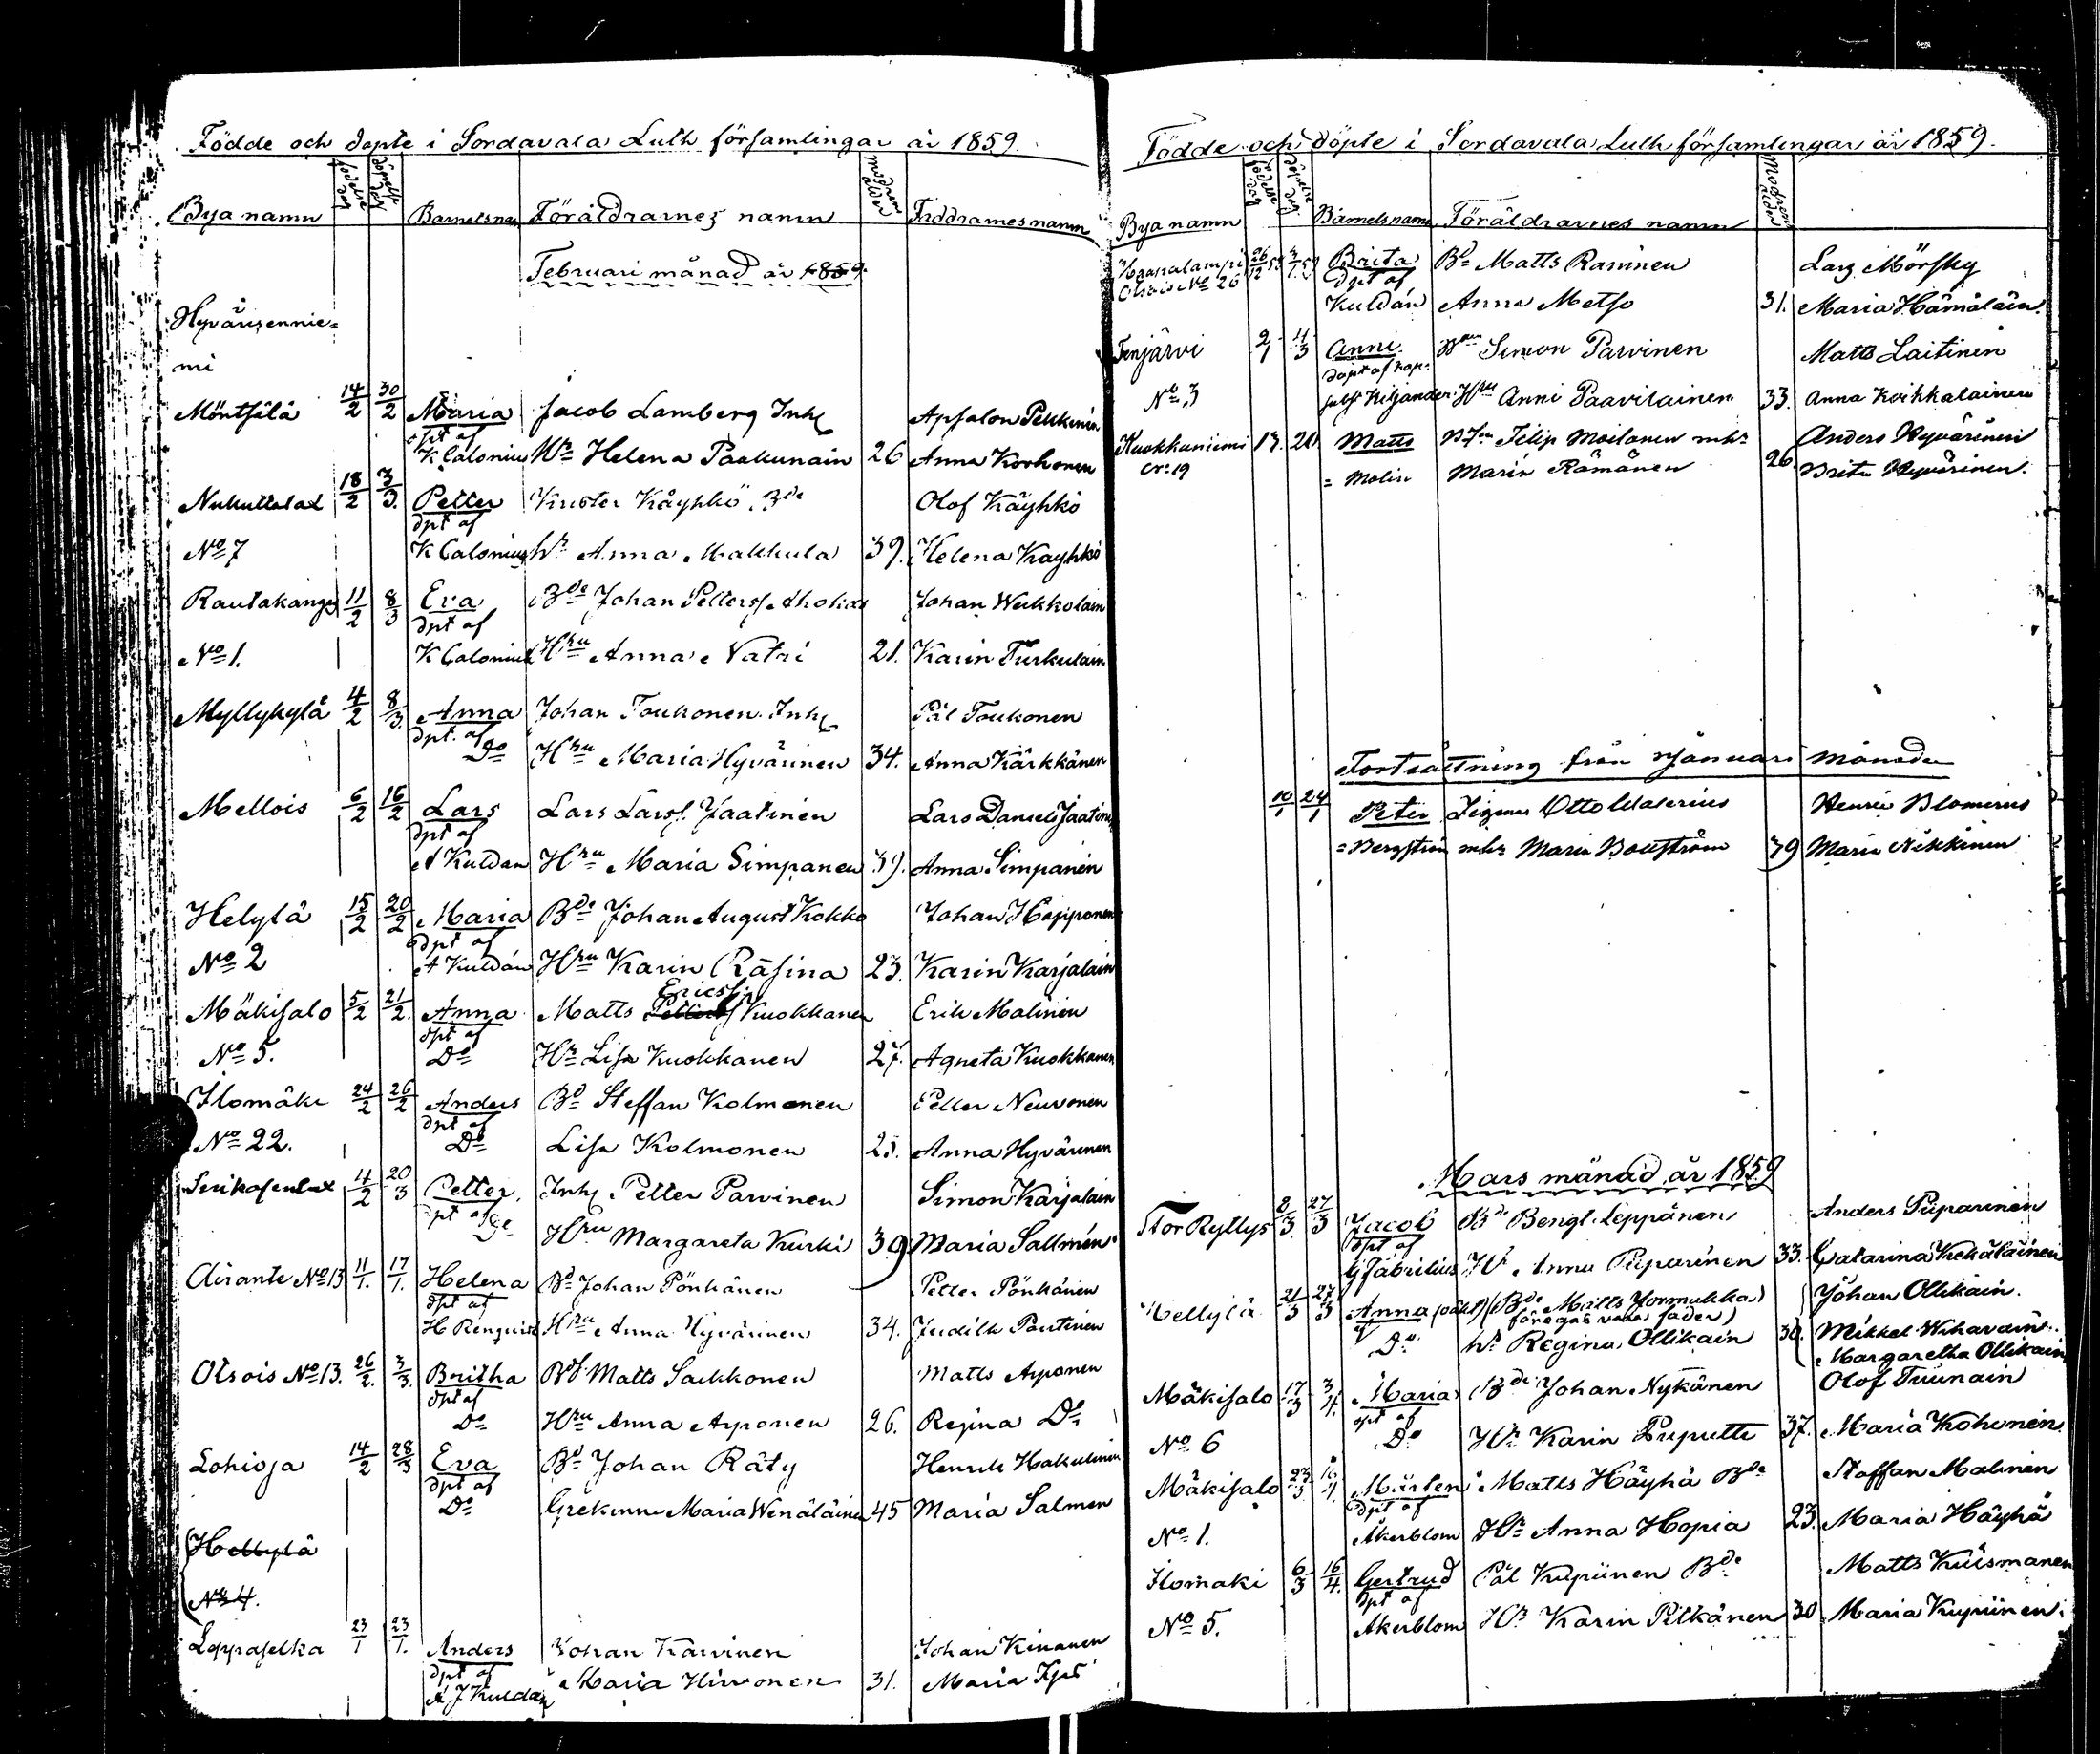 Födde och döpte i Sordavala Luth församlingar år 1859.
Bya namn födelse dag döpelse dag Barnets nam Föräldrarnes namn modrens ålder Faddrarnes namn
Februari månad år 1859.
Hyvärisennie=
mi
Möntsälä 14/2 30/2 Maria Jacob Lamberg Inh Apsalon Pekkinin
dpt af
K Calonius Hr Helena Paakunain 26 Anna Korhonen
Nukuttalax 18/2 3/3. Petter Krister Käyhkö Bde Olof Käyhkö
dpt af
No 7 K Calonius Hr Anna Makkula 39. Helena Kayhkö
Rautakangs 11/2 8/3 Eva Bde Johan Petterss Ahokas Johan Weikkolain
dpt af
No 1. K Calonius Hru Anna Vatri 21. Karin Turkulain
Myllykylä 4/2 8/3. Anna Johan Toukonen Inh Pål Toukonen
dpt. af
Do Hru Maria Hyvärinen 34. Anna Kärkkänen
Mellois 6/2 16/2 Lars Lars Larss. Jaatinen Lars Daniels Jaatine
dpt af
A Kuldan Hru Maria Simpanen 39. Anna Simpanen
Helylä 15/2 20/2 Maria Bde Johan August Kokko Johan Happonen
dpt af
No 2 A Kuldán Hru Karin Räsina 23. Karin Karjalain
Ericss
Mäkisalo 5/2 21/2. Anna Matts Petterss Kuokkanen Erik Malinen
dpt af
No 5. Do Hr Lisa Kuokkanen 27. Agneta Kuokkanen
Ilomäki 24/2 26/2 Anders Bd Steffan Kolmonen Petter Neuvonen
dpt af
No 22. Do Lisa Kolmonen 25. Anna Hyvärinen
11/2 20/3 Petter Inh Petter Parvinen Simon Karjalain
dpt af
Hru Margareta Kurki 39 Maria Sallmén
Airante No 13 11/1. 17/1. Helena Bd Johan Pönkänen Petter Pönkänen
dpt af
H Renquist Hru Anna Hyvärinen 34. Judith Pautinen
Otsois No 13. 26/2. 3/3. Britha Bd Matts Saikkonen Matts Asponen
dpt af
Do Hru Anna Asponen 26. Regina Do
Lohioja 14/2 28/3 Eva Bd Johan Räty Henrik Hakulinen
dpt af
Do Grekinna Maria Wenäläinen 45 Maria Salmen
Hellylä
No 4.
Leppaselka 23/1 23/1. Anders Johan Karvinen Johan Kinanen
dpt af
A J Kuldan Maria Hirvonen 31. Maria
Födde och döpte i Sordavala Luth församlingar år 1859.
Bya namn födelse dag döpelse dag Barnets namn Föräldrarnes namn Modrens ålder
Haapalampi 26/12 58 3/1 59 Brita Bd Matts Raninen Lars Mörsky
Otsois No 26 dpt af
Kuldán Anna Metso 31. Maria Hämäläin.
Tenjärvi 2/1 11/3 Anni Simon Parvinen Matts Laitinen
döpt af kap:
No 3 Kiljander Hru Anni Paavilainen 33. Anna Koikkalainen
Kuokkaniemi 13. 20. Matts Filip Moilanen mhr Anders Hyvärinen
No 19 = Molin Maria Rämänen 26. Brita Hyvärinen.
Fortsättning från Januari månader
10/1 24/1 Peter Otto Walerius Henric Blomerus
= Bergström mhr Maria Boeström 39 Maria Nikkinen
Mars månad år 1859
Stor Ryttys 8/3. 27/3 Jacob Bde Bengt Leppänen Anders Piiparinen
dpt af
G Fabritius Hr Anna Piiparinen 33. Catarina Kekäläinen
Hellylä 21/3 27/3 Anna (oäkt) (Bde Matts Yormukka) Johan Ollikain.
föregås vara fader)
Do hr Regina Ollikain 30. Mikkel Wihavain
Margaretha Ollikain
Mäkisalo 17/3 3/4. Maria Bde Johan Nykänen Olof Tuunain
dpt af
No 6 Do Hr Karin Puputti 37. Maria Kohonen.
Mäkisalo 23/3. 16/4. Mårten Matts Häyhä Bde Staffan Malinen
dpt af
No 1. Åkerblom Hr Anna Hopia 23. Maria Häyhä
Ilomaki 6/3 16/4. Gertrud Pål Kupiinen Bde Matts Kuismanen
dpt af
No 5. Akerblom Hr Karin Pitkänen 30 Maria Kupiinen.